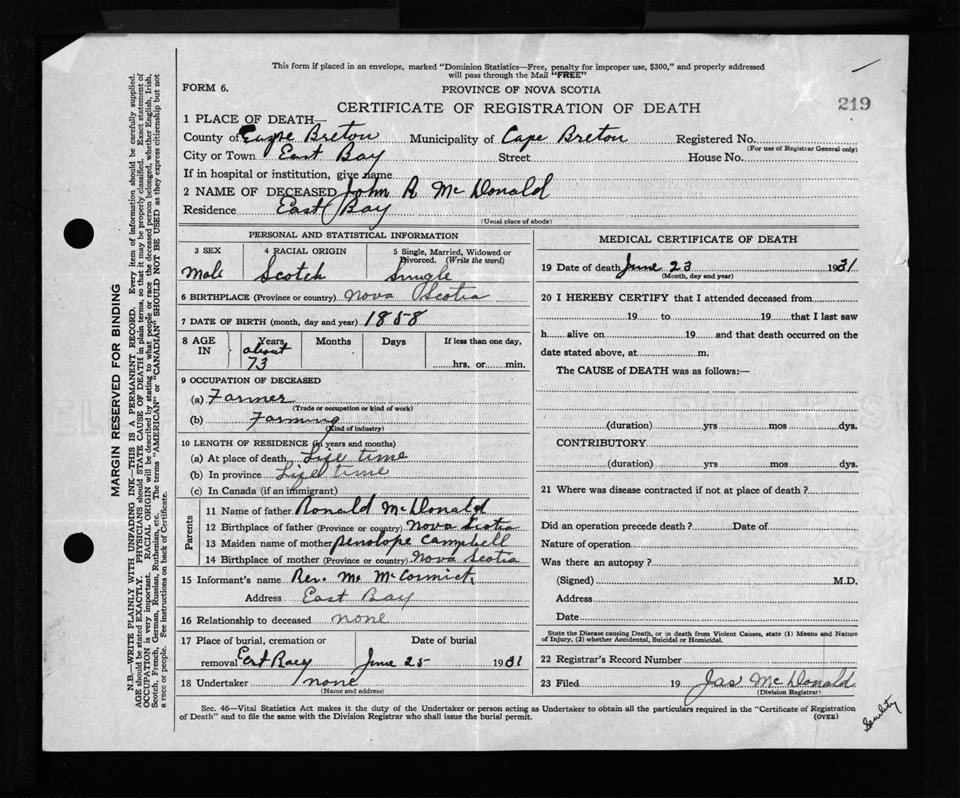 This form if placed in an envelope, marked "Dominion Statistics—Free, penalty for improper use, $300," and properly addressed
will pass through the Mail "FREE"
FORM 6.
PROVINCE OF NOVA SCOTIA
219
CERTIFICATE OF REGISTRATION OF DEATH
1 PLACE OF DEATH—
County of Cape Breton Municipality of Cape Breton Registered No.
(For use of Registrar General only)
City or Town East Bay Street House No.
If in hospital or institution, give name
2 NAME OF DECEASED John R McDonald
Residence East Bay
(Usual place of abode)
PERSONAL AND STATISTICAL INFORMATION
3 SEX 4 RACIAL ORIGIN 5 Single, Married, Widowed or
Divorced. (Write the word)
Male Scotch Single
6 BIRTHPLACE (Province or country) Nova Scotia
7 DATE OF BIRTH (month, day and year) 1858
8 AGE IN Years Months Days If less than one day,
about
73 hrs. or min.
9 OCCUPATION OF DECEASED
(a) Farmer
(Trade or occupation or kind of work)
(b) Farming
(Kind of industry)
10 LENGTH OF RESIDENCE (in years and months)
(a) At place of death Life time
(b) In province Life time
(c) In Canada (if an immigrant)
Parents
11 Name of father Ronald McDonald
12 Birthplace of father (Province or country) Nova Scotia
13 Maiden name of mother Penelope Campbell
14 Birthplace of mother (Province or country) Nova Scotia
15 Informant's name Rev. M. McCormick
Address East Bay
16 Relationship to deceased none
17 Place of burial, cremation or Date of burial
removal East Bay June 25 1931
18 Undertaker none
(Name and address)
MEDICAL CERTIFICATE OF DEATH
19 Date of death June 23 1931
(Month, day and year)
20 I HEREBY CERTIFY that I attended deceased from
19 to 19 that I last saw
h alive on 19 and that death occurred on the
date stated above, at m.
The CAUSE of DEATH was as follows:—
(duration) yrs mos dys.
CONTRIBUTORY
(duration) yrs mos dys.
21 Where was disease contracted if not at place of death?
Did an operation precede death? Date of
Nature of operation
Was there an autopsy?
(Signed) M.D.
Address
Date
State the Disease causing Death, or in death from Violent Causes, state (1) Means and Nature
of Injury, (2) whether Accidental, Suicidal or Homicidal.
22 Registrar's Record Number
23 Filed 19 Jas McDonald
(Division Registrar)
Sec. 46—Vital Statistics Act makes it the duty of the Undertaker or person acting as Undertaker to obtain all the particulars required in the "Certificate of Registration
of Death" and to file the same with the Division Registrar who shall issue the burial permit.
(OVER)
Senility
MARGIN RESERVED FOR BINDING
N.B.—WRITE PLAINLY WITH UNFADING INK—THIS IS A PERMANENT RECORD. Every item of information should be carefully supplied.
AGE should be stated EXACTLY. PHYSICIANS should STATE CAUSE OF DEATH in plain terms, so that it may be properly classified. Exact statement of
OCCUPATION is very important. RACIAL ORIGIN will be described by stating to what people or race the deceased person belonged, whether English, Irish,
Scotch, French, German, Russian, Ruthenian, etc. The terms "AMERICAN" or "CANADIAN" SHOULD NOT BE USED as they express citizenship but not
a race or people. See instructions on back of Certificate.